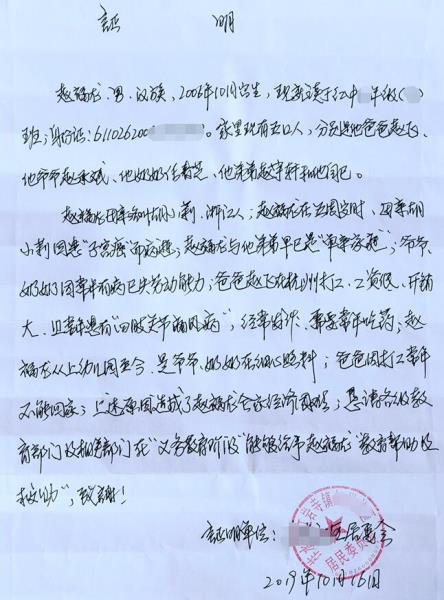 证 明
赵福龙,男,汉族,2006年10月出生,现就读于红中 年级( )
班;身份证:611026200 。家里现有五口人,分别是他爸爸赵飞、
他爷爷赵 斌、他奶奶任 芝、他弟弟赵宇轩和他自己。
赵福龙 胡小莉,浙江人;赵福龙在五周岁时,因 胡
小莉因患“子宫癌”而病逝;赵福龙与他弟弟早已是“单亲家庭”;爷爷、
奶奶因年老有病已失劳动能力;爸爸赵飞在杭州打工,工资低、开销
大,且常年患有“四肢关节痛风病”,经常发作、需要常年吃药;赵
福龙从上幼儿园至今,是爷爷、奶奶在细心照料;爸爸因打工常年
不能回家;上述原因造成了赵福龙全家经济困难;恳请各级教
育部门及相关部门在“义务教育阶段”能够给予赵福龙“教育帮助及
扶助”,致谢!
证明单位: 社区居委会
岩寺镇
居民委员会
2019年10月16日